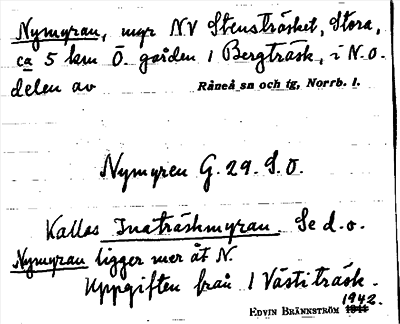 Nymyran, myr NV Stensträsket, Stora,
ca 5 km Ö. gården 1 Bergträsk, i N.O.
delen av Råneå sn och tg, Norrb. l.
Nymyren G. 29. S.O.
Kallas Inaträskmyran. Se d.o.
Nymyran ligger mer åt N.
Uppgiften från 1 Västiträsk.
EDVIN BRÄNNSTRÖM 1942.